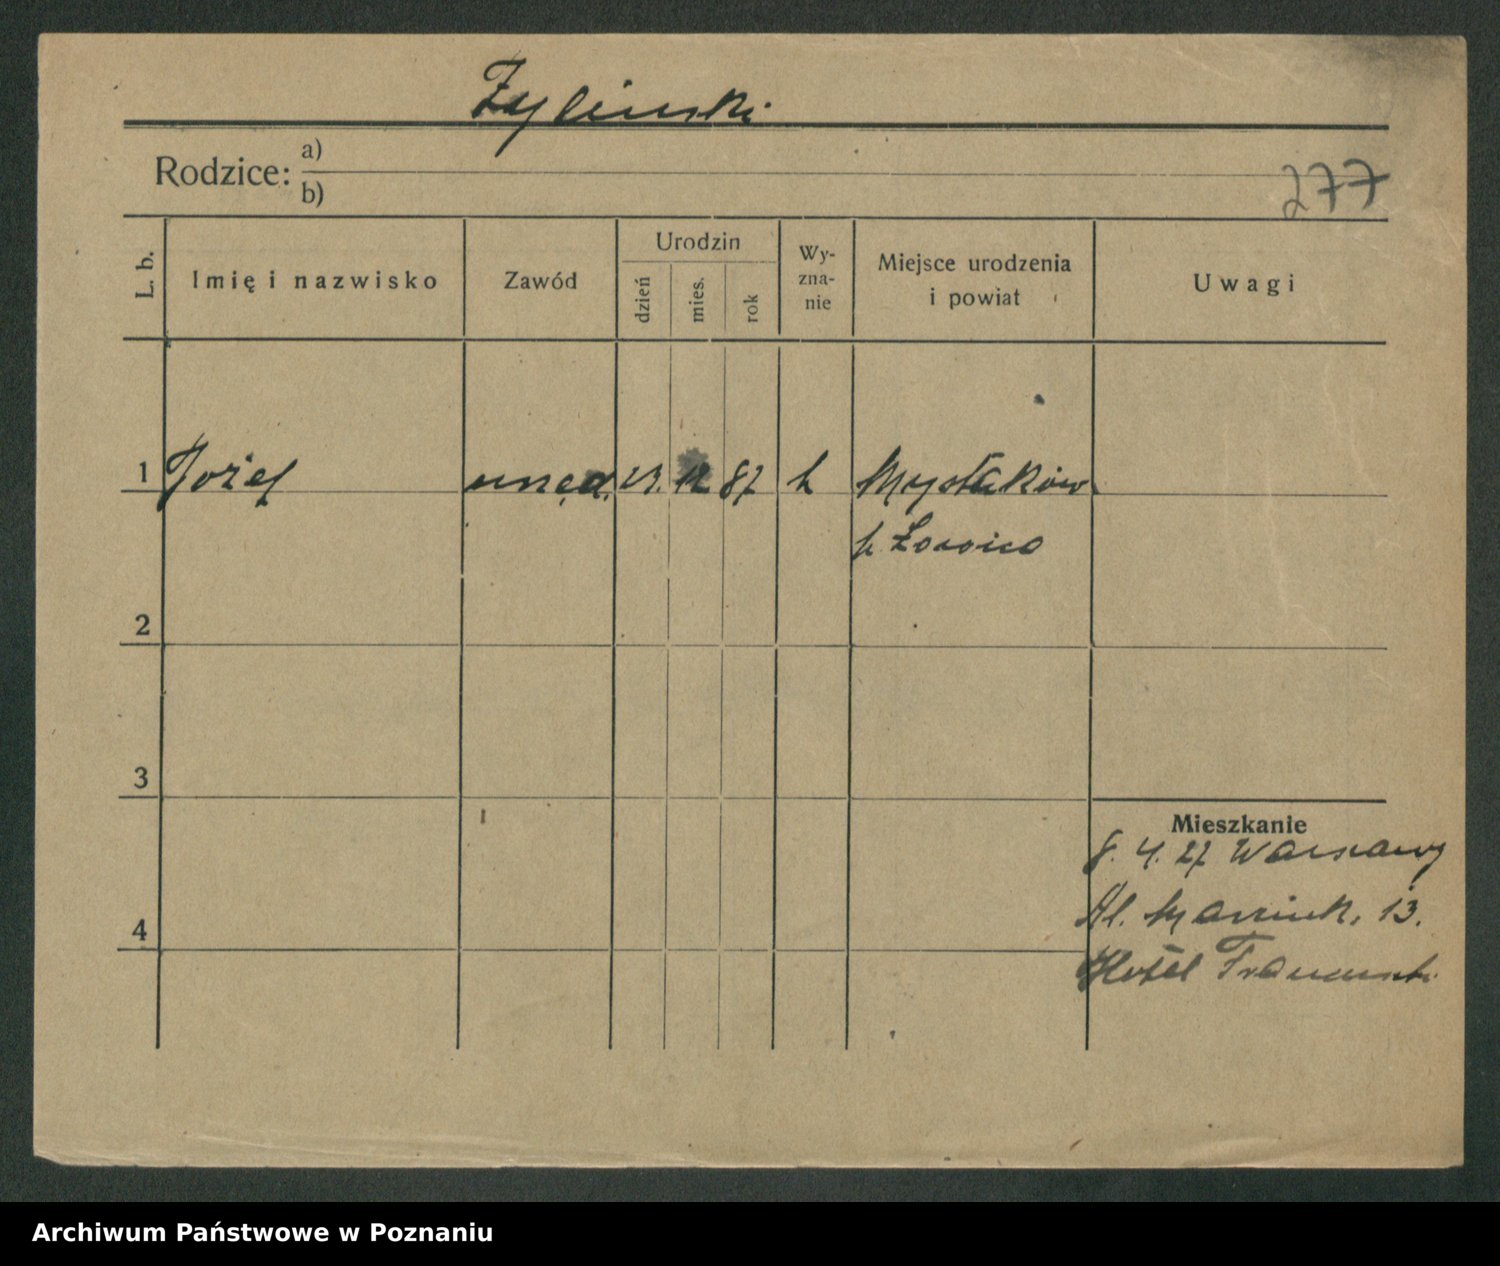 Zyliński
Rodzice: a)
b)
277
L. b.
Imię i nazwisko
Zawód
Urodzin
dzień
mies.
rok
Wy-
zna-
nie
Miejsce urodzenia
i powiat
Uwagi
1 Józef urzęd. 12 87 k Mysłaków
p Łowicz
2
3
Mieszkanie
8. 4. 27 Warszawy
Al. Marcink. 13.
4
Hotel Francuski
Archiwum Państwowe w Poznaniu